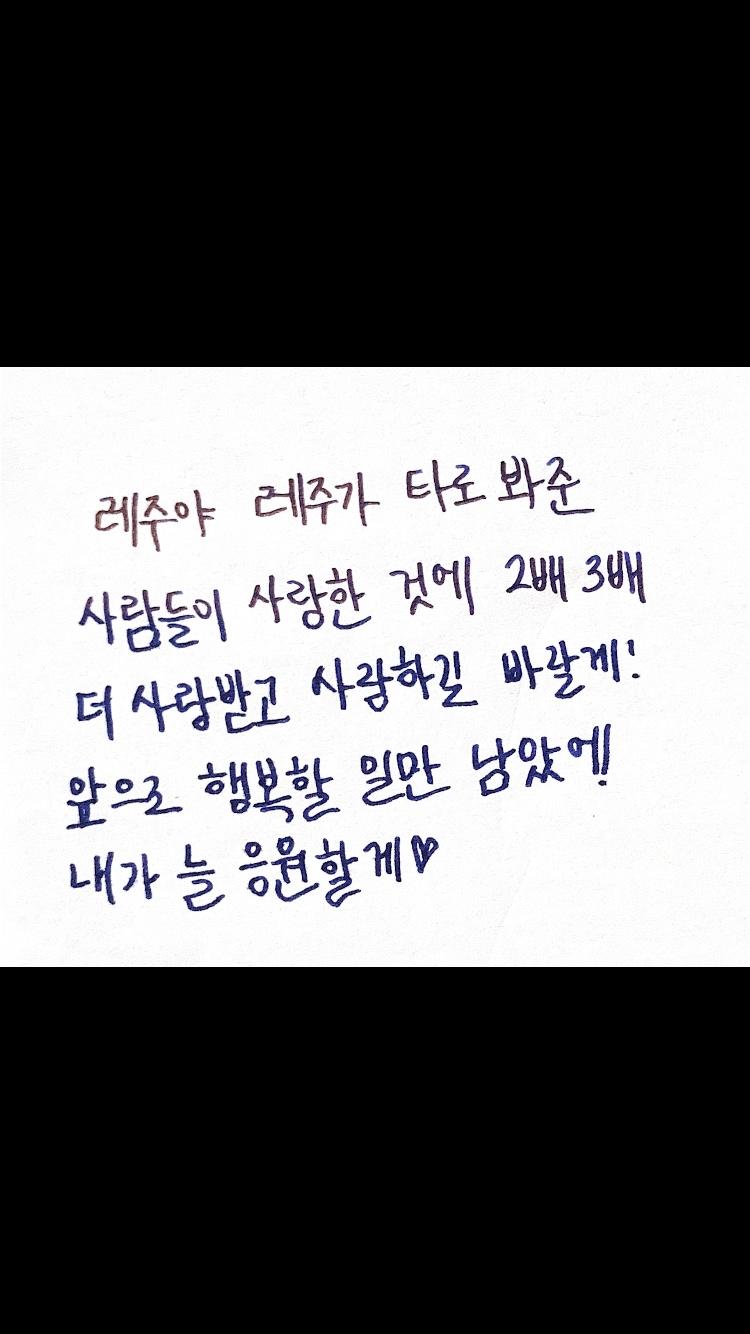 레주야 레주가 타로 봐준
사람들이 사랑한 것에 2배 3배
더 사랑받고 사랑하길 바랄게!
앞으로 행복할 일만 남았에!
내가 늘 응원할게♥